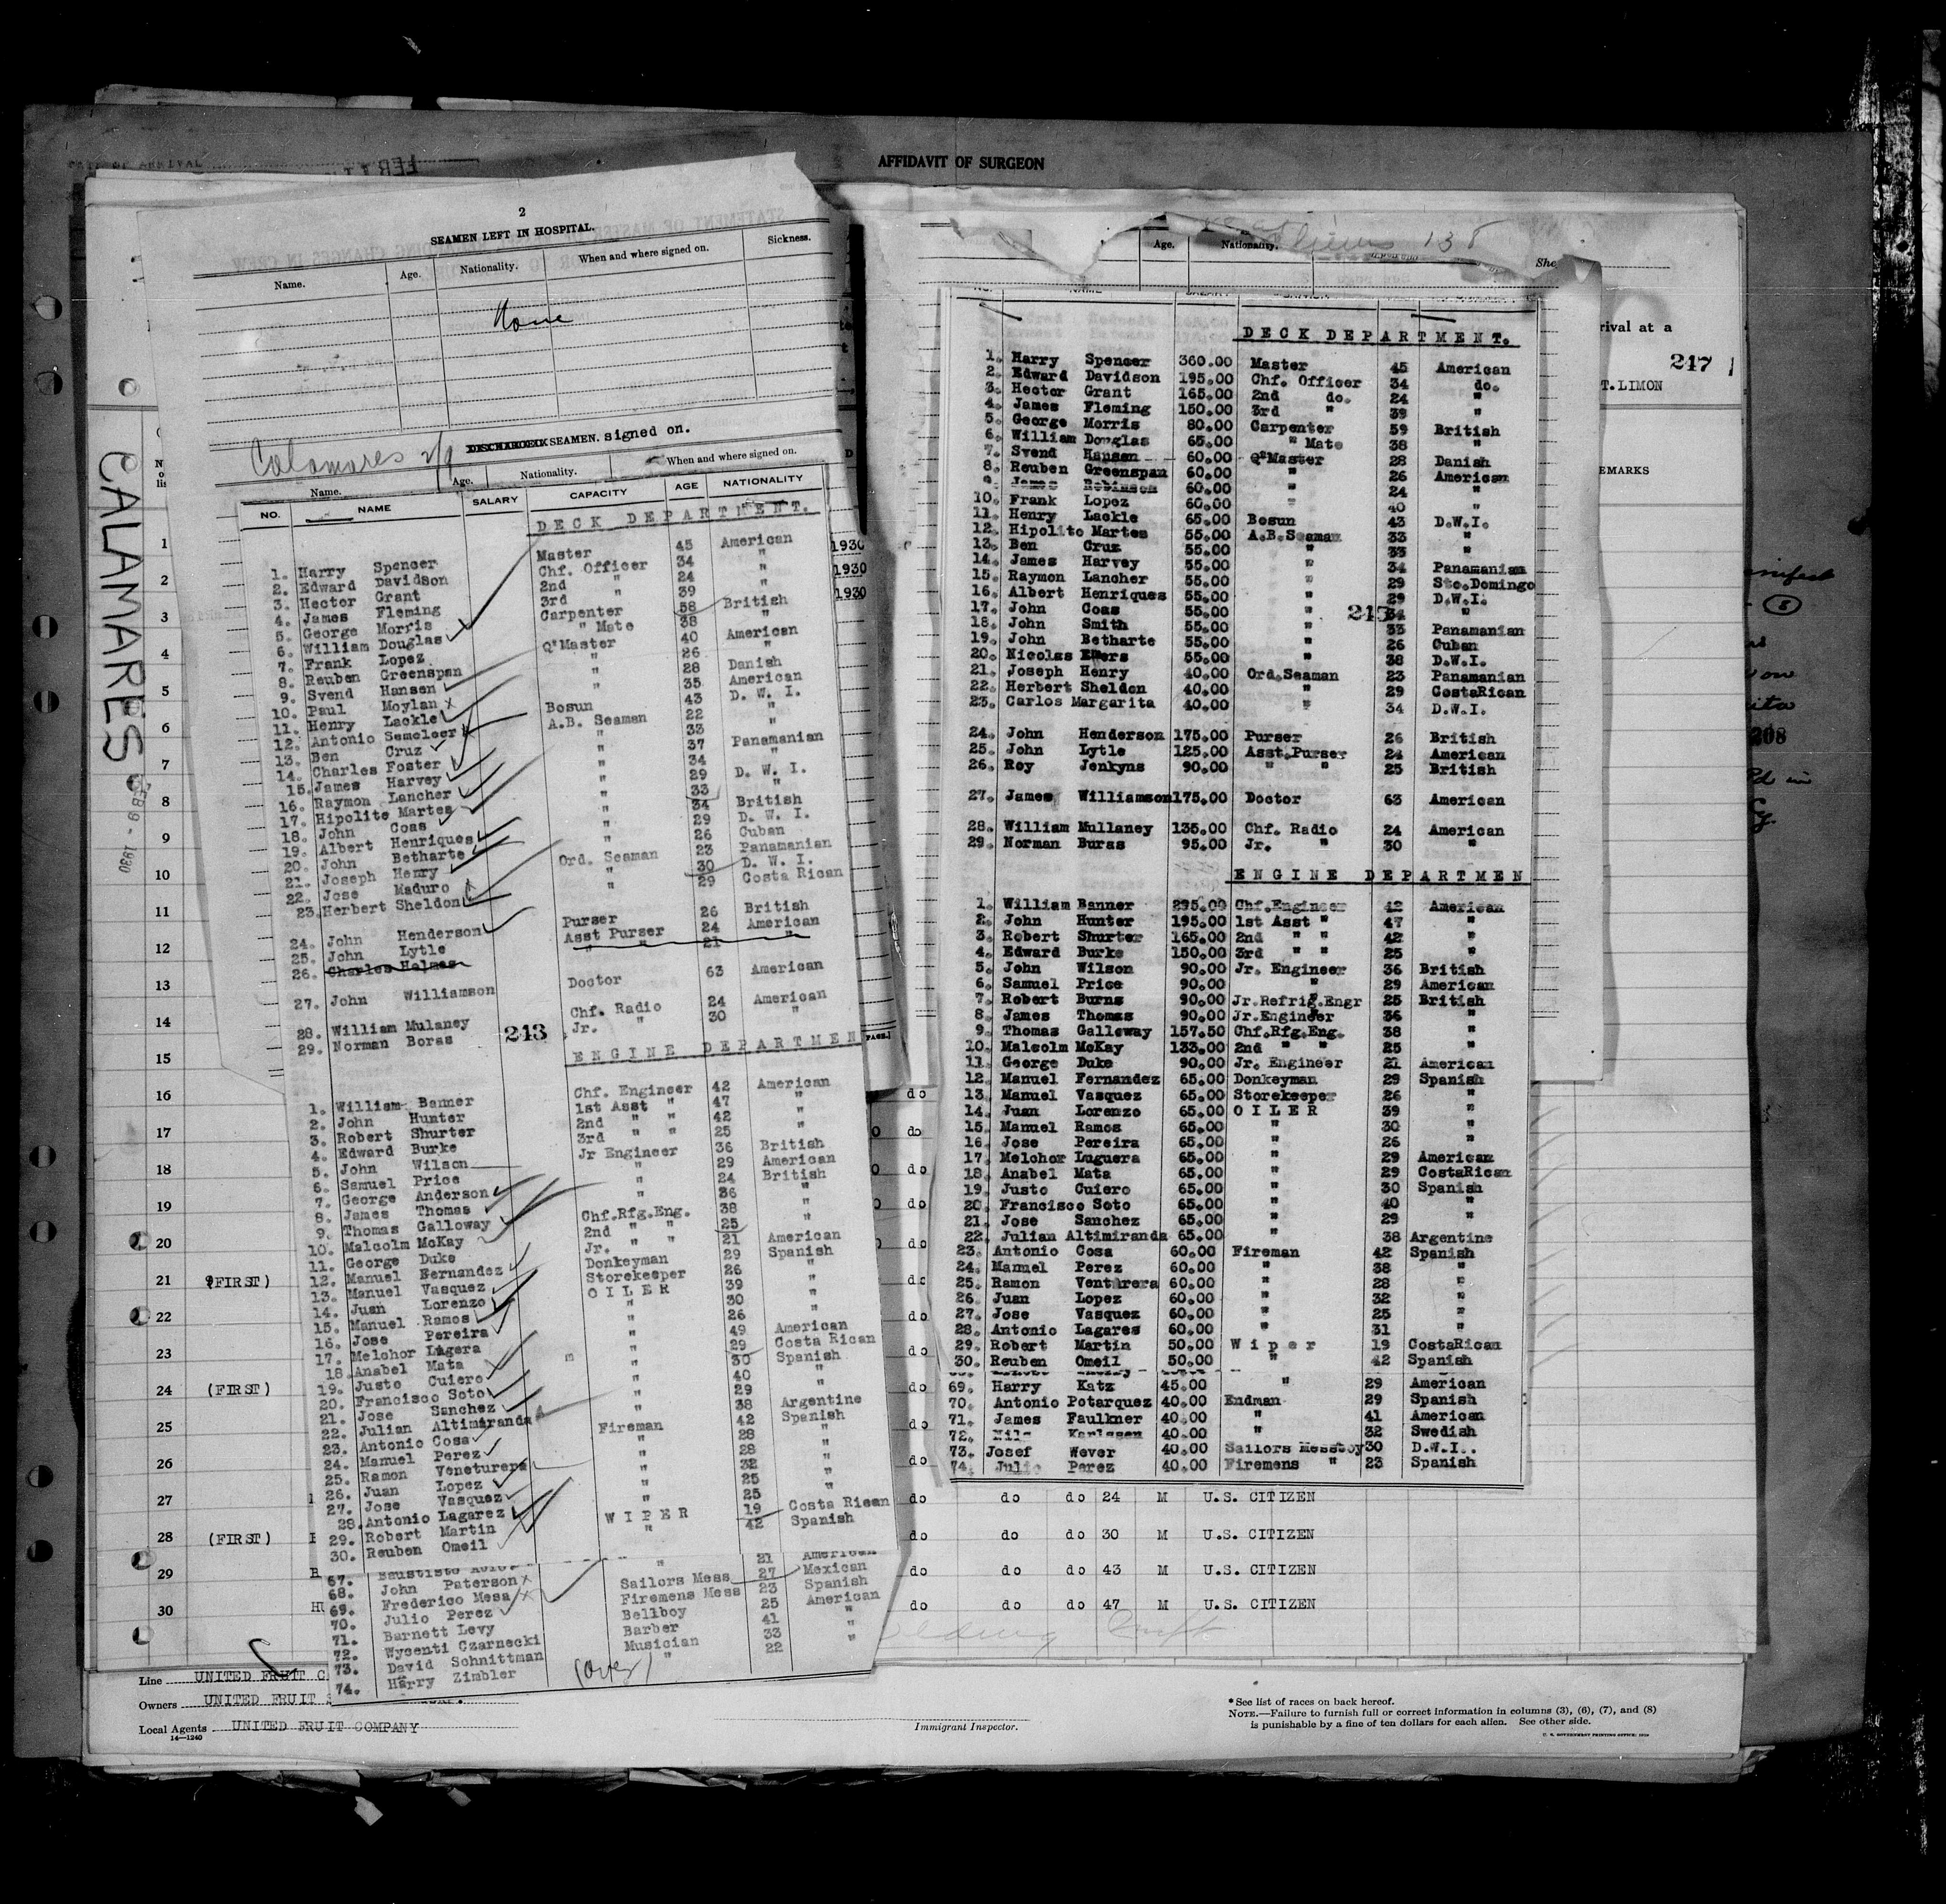 AFFIDAVIT OF SURGEON
2
SEAMEN LEFT IN HOSPITAL.
Name. Age. Nationality. When and where signed on. Sickness.
None
SEAMEN. signed on.
Calamares
Name. Age. Nationality. When and where signed on.
NO. NAME SALARY CAPACITY AGE NATIONALITY
DECK DEPARTMENT.
1. Harry Spencer Master 45 American
2. Edward Davidson Chf. Officer 34 "
3. Hector Grant 2nd " 24 "
4. James Fleming 3rd " 39 "
5. George Morris Carpenter 58 British
6. William Douglas " Mate 38 "
7. Frank Lopez Qr Master 40 American
8. Reuben Greenspan " 26 "
9. Svend Hansen " 28 Danish
10. Paul Moylan " 35 American
11. Henry Lackle Bosun 43 D. W. I.
12. Antonio Semeleer A.B. Seaman 22 "
13. Ben Cruz " 33 "
14. Charles Foster " 37 Panamanian
15. James Harvey " 34 "
16. Raymon Lancher " 29 D. W. I.
17. Hipolite Martes " 33 "
18. John Coas " 34 British
19. Albert Henriques " 29 D. W. I.
20. John Betharte " 26 Cuban
21. Joseph Henry Ord. Seaman 23 Panamanian
22. Jose Maduro " 30 D. W. I.
23. Herbert Sheldon " 29 Costa Rican
24. John Henderson Purser 26 British
25. John Lytle Asst Purser 24 American
26. Charles Holmes " " 21
27. John Williamson Doctor 63 American
28. William Mulaney Chf. Radio 24 American
29. Norman Boras Jr. " 30 "
243
ENGINE DEPARTMEN
1. William Banner Chf. Engineer 42 American
2. John Hunter 1st Asst " 47 "
3. Robert Shurter 2nd " " 42 "
4. Edward Burke 3rd " " 25 "
5. John Wilson Jr Engineer 36 British
6. Samuel Price " 29 American
7. George Anderson " 24 British
8. James Thomas " 36 "
9. Thomas Galloway Chf.Rfg.Eng. 38 "
10. Malcolm McKay 2nd " " 25 "
11. George Duke Jr. " " 21 American
12. Manuel Fernandez Donkeyman 29 Spanish
13. Manuel Vasquez Storekeeper 26 "
14. Juan Lorenzo OILER 39 "
15. Manuel Ramos " 30 "
16. Jose Pereira " 26 "
17. Melchor Lagera " 49 American
18. Anabel Mata " 29 Costa Rican
19. Justo Cuiero " 30 Spanish
20. Francisco Soto " 40 "
21. Jose Sanchez " 29 "
22. Julian Altimiranda " 38 Argentine
23. Antonio Cosa Fireman 42 Spanish
24. Manuel Perez " 28 "
25. Ramon Veneturepa " 28 "
26. Juan Lopez " 32 "
27. Jose Vasquez " 25 "
28. Antonio Lagarez " 25 "
29. Robert Martin WIPER 19 Costa Rican
30. Reuben Omeil " 42 Spanish
67. " 21 American
68. John Paterson Sailors Mess 27 Mexican
69. Frederico Mesa Firemens Mess 23 Spanish
70. Julio Perez Bellboy 25 American
71. Barnett Levy Barber 41 "
72. Wycenti Czarnecki Musician 33 "
73. David Schnittman " 22 "
74. Harry Zimbler
(over)
CALAMARES
1930
1930
1930
1
2
3
4
5
6
7
8
9
10
11
12
13
14
15
16
17
18
19
20
21 (FIRST)
22
23
24 (FIRST)
25
26
27
28 (FIRST)
29
30
Age. Nationality.
138
rival at a
247
T. LIMON
EMARKS
208
DECK DEPARTMENT.
1. Harry Spencer 360.00 Master 45 American
2. Edward Davidson 195.00 Chf. Officer 34 do.
3. Hector Grant 165.00 2nd do. 24 "
4. James Fleming 150.00 3rd " 39 "
5. George Morris 80.00 Carpenter 59 British
6. William Douglas 65.00 " Mate 38 "
7. Svend Hansen 60.00 Qr Master 28 Danish
8. Reuben Greenspan 60.00 " 26 American
9. James Robinson 60.00 " 24 "
10. Frank Lopez 60.00 " 40 "
11. Henry Lackle 65.00 Bosun 43 D.W.I.
12. Hipolito Martes 55.00 A.B.Seaman 33 "
13. Ben Cruz 55.00 " 33 "
14. James Harvey 55.00 " 34 Panamanian
15. Raymon Lancher 55.00 " 29 Sto.Domingo
16. Albert Henriques 55.00 " 29 D.W.I.
17. John Coas 55.00 " 34 "
18. John Smith 55.00 " 33 Panamanian
19. John Betharte 55.00 " 26 Cuban
20. Nicolas Emers 55.00 " 38 D.W.I.
21. Joseph Henry 40.00 Ord.Seaman 23 Panamanian
22. Herbert Sheldon 40.00 " 29 CostaRican
23. Carlos Margarita 40.00 " 34 D.W.I.
24. John Henderson 175.00 Purser 26 British
25. John Lytle 125.00 Asst.Purser 24 American
26. Roy Jenkyns 90.00 " " 25 British
27. James Williamson 175.00 Doctor 63 American
28. William Mullaney 135.00 Chf. Radio 24 American
29. Norman Buras 95.00 Jr. " 30 "
ENGINE DEPARTMEN
1. William Banner 295.00 Chf.Engineer 42 American
2. John Hunter 195.00 1st Asst " 47 "
3. Robert Shurter 165.00 2nd " " 42 "
4. Edward Burke 150.00 3rd " " 25 "
5. John Wilson 90.00 Jr. Engineer 36 British
6. Samuel Price 90.00 " 29 American
7. Robert Burns 90.00 Jr.Refrig.Engr 25 British
8. James Thomas 90.00 Jr.Engineer 36 "
9. Thomas Galloway 157.50 Chf.Rfg.Eng. 38 "
10. Malcolm McKay 133.00 2nd " " 25 "
11. George Duke 90.00 Jr. Engineer 21 American
12. Manuel Fernandez 65.00 Donkeyman 29 Spanish
13. Manuel Vasquez 65.00 Storekeeper 26 "
14. Juan Lorenzo 65.00 OILER 39 "
15. Manuel Ramos 65.00 " 30 "
16. Jose Pereira 65.00 " 26 "
17. Melchor Luguera 65.00 " 29 American
18. Anabel Mata 65.00 " 29 CostaRican
19. Justo Cuiero 65.00 " 30 Spanish
20. Francisco Soto 65.00 " 40 "
21. Jose Sanchez 65.00 " 29 "
22. Julian Altimiranda 65.00 " 38 Argentine
23. Antonio Cosa 60.00 Fireman 42 Spanish
24. Manuel Perez 60.00 " 38 "
25. Ramon Venturera 60.00 " 28 "
26. Juan Lopez 60.00 " 32 "
27. Jose Vasquez 60.00 " 25 "
28. Antonio Lagares 60.00 " 31 "
29. Robert Martin 50.00 Wiper 19 CostaRican
30. Reuben Omeil 50.00 " 42 Spanish
69. Harry Katz 45.00 " 29 American
70. Antonio Potarquez 40.00 Endman 29 Spanish
71. James Faulkner 40.00 " 41 American
72. Nils Karlssen 40.00 " 32 Swedish
73. Josef Wever 40.00 Sailors Messboy 30 D.W.I.
74. Julio Perez 40.00 Firemens " 23 Spanish
do do do 24 M U.S. CITIZEN
do do do 30 M U.S. CITIZEN
do do do 43 M U.S. CITIZEN
do do do 47 M U.S. CITIZEN
Line UNITED FRUIT
Owners UNITED FRUIT
Local Agents UNITED FRUIT COMPANY
14—1240
Immigrant Inspector.
* See list of races on back hereof.
NOTE.—Failure to furnish full or correct information in columns (3), (6), (7), and (8)
is punishable by a fine of ten dollars for each alien. See other side.